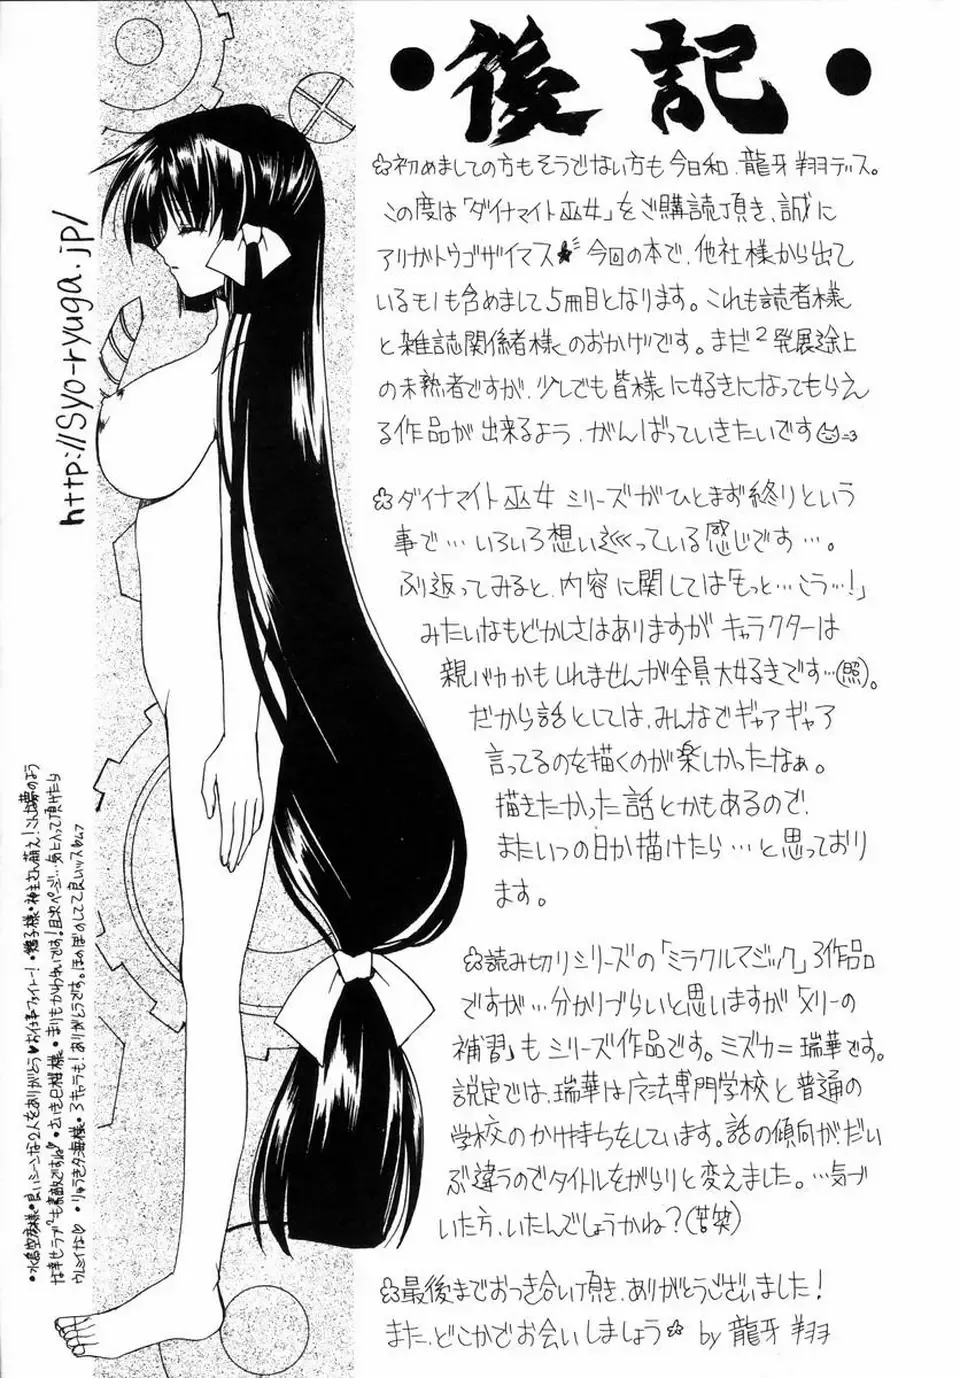 ●後記●
☆初めましての方もそうでない方も今日和、龍牙翔デス。
この度は「ダイナマイト巫女」をご購読頂き、誠に
アリガトウゴザイマス★ 今回の本で、他社様から出て
いるモノも含めまして5冊目となります。これも読者様
と雑誌関係者様のおかげです。まだ2発展途上
の未熟者ですが、少しでも皆様に好きになってもらえ
る作品が出来るよう、がんばっていきたいです
☆ダイナマイト巫女シリーズがひとまず終りという
事で…いろいろ想い巡っている感じです…。
ふり返ってみると、内容に関しては「もっと…こう…!」
みたいなもどかしさはありますがキャラクターは
親バカかもしれませんが全員大好きです…(照)。
だから話としては、みんなでギャアギャア
言ってるのを描くのが楽しかったなぁ。
描きたかった話とかもあるので、
またいつの日か描けたら…と思っており
ます。
☆読み切りシリーズの「ミラクルマジック」3作品
ですが…分かりづらいと思いますが「メリーの
補習」もシリーズ作品です。ミズカ=瑞華です。
設定では、瑞華は魔法専門学校と普通の
学校のかけ持ちをしています。話の傾向が、だい
ぶ違うのでタイトルをがらりと変えました。…気づ
いた方、いたんでしょうかね?(苦笑)
☆最後までおつき合い頂き、ありがとうございました!
また、どこかでお会いしましょう☆ by 龍牙翔ヲ
http://syo-ryuga.jp/
●水島空彦様●良いシーンな2人をありがとう♥お仕事ファイトー!
も素敵ですね
ありがとうです。ほのぼのしてて良いッスねェ